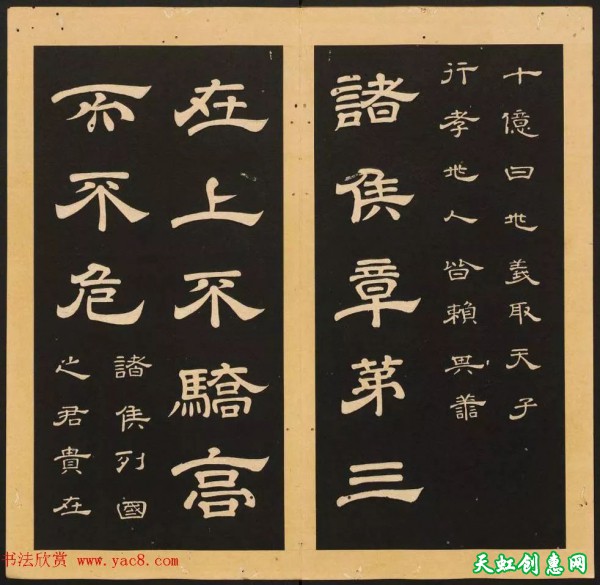 十億曰兆義取天子
行孝兆人皆賴其善
諸侯章第三
在上不驕高
而不危
諸侯列國
之君貴在
书法欣赏 www.yac8.com
天虹创惠网